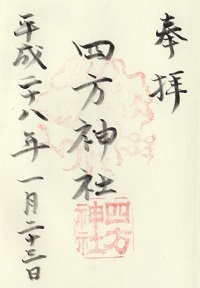 奉拝
四方神社
四方神社
平成二十八年一月二十三日